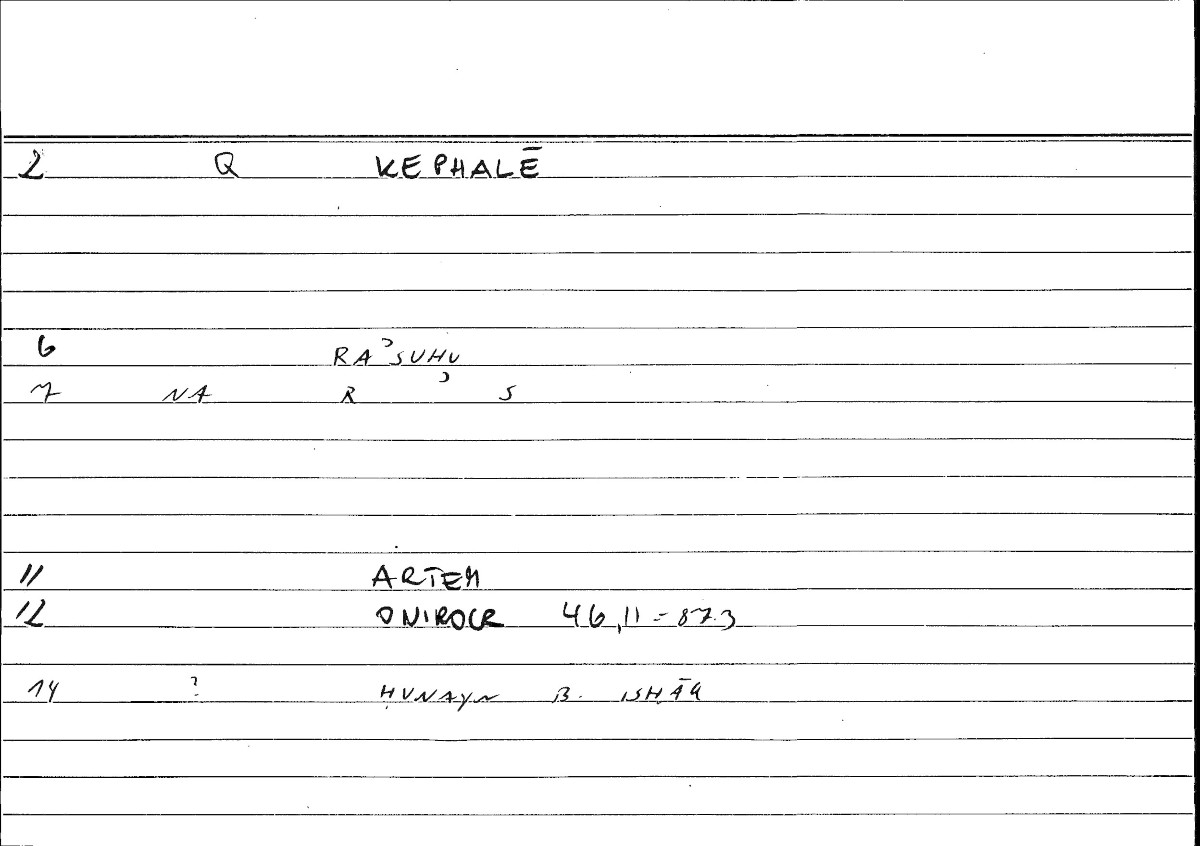 2 Q KEPHALĒ
6 RAʾSUHU
7 NA R ʾ S
11 ARTEM
12 ONIROCR 46,11 = 87.3
14 ? ḤUNAYN B. ISḤĀQ